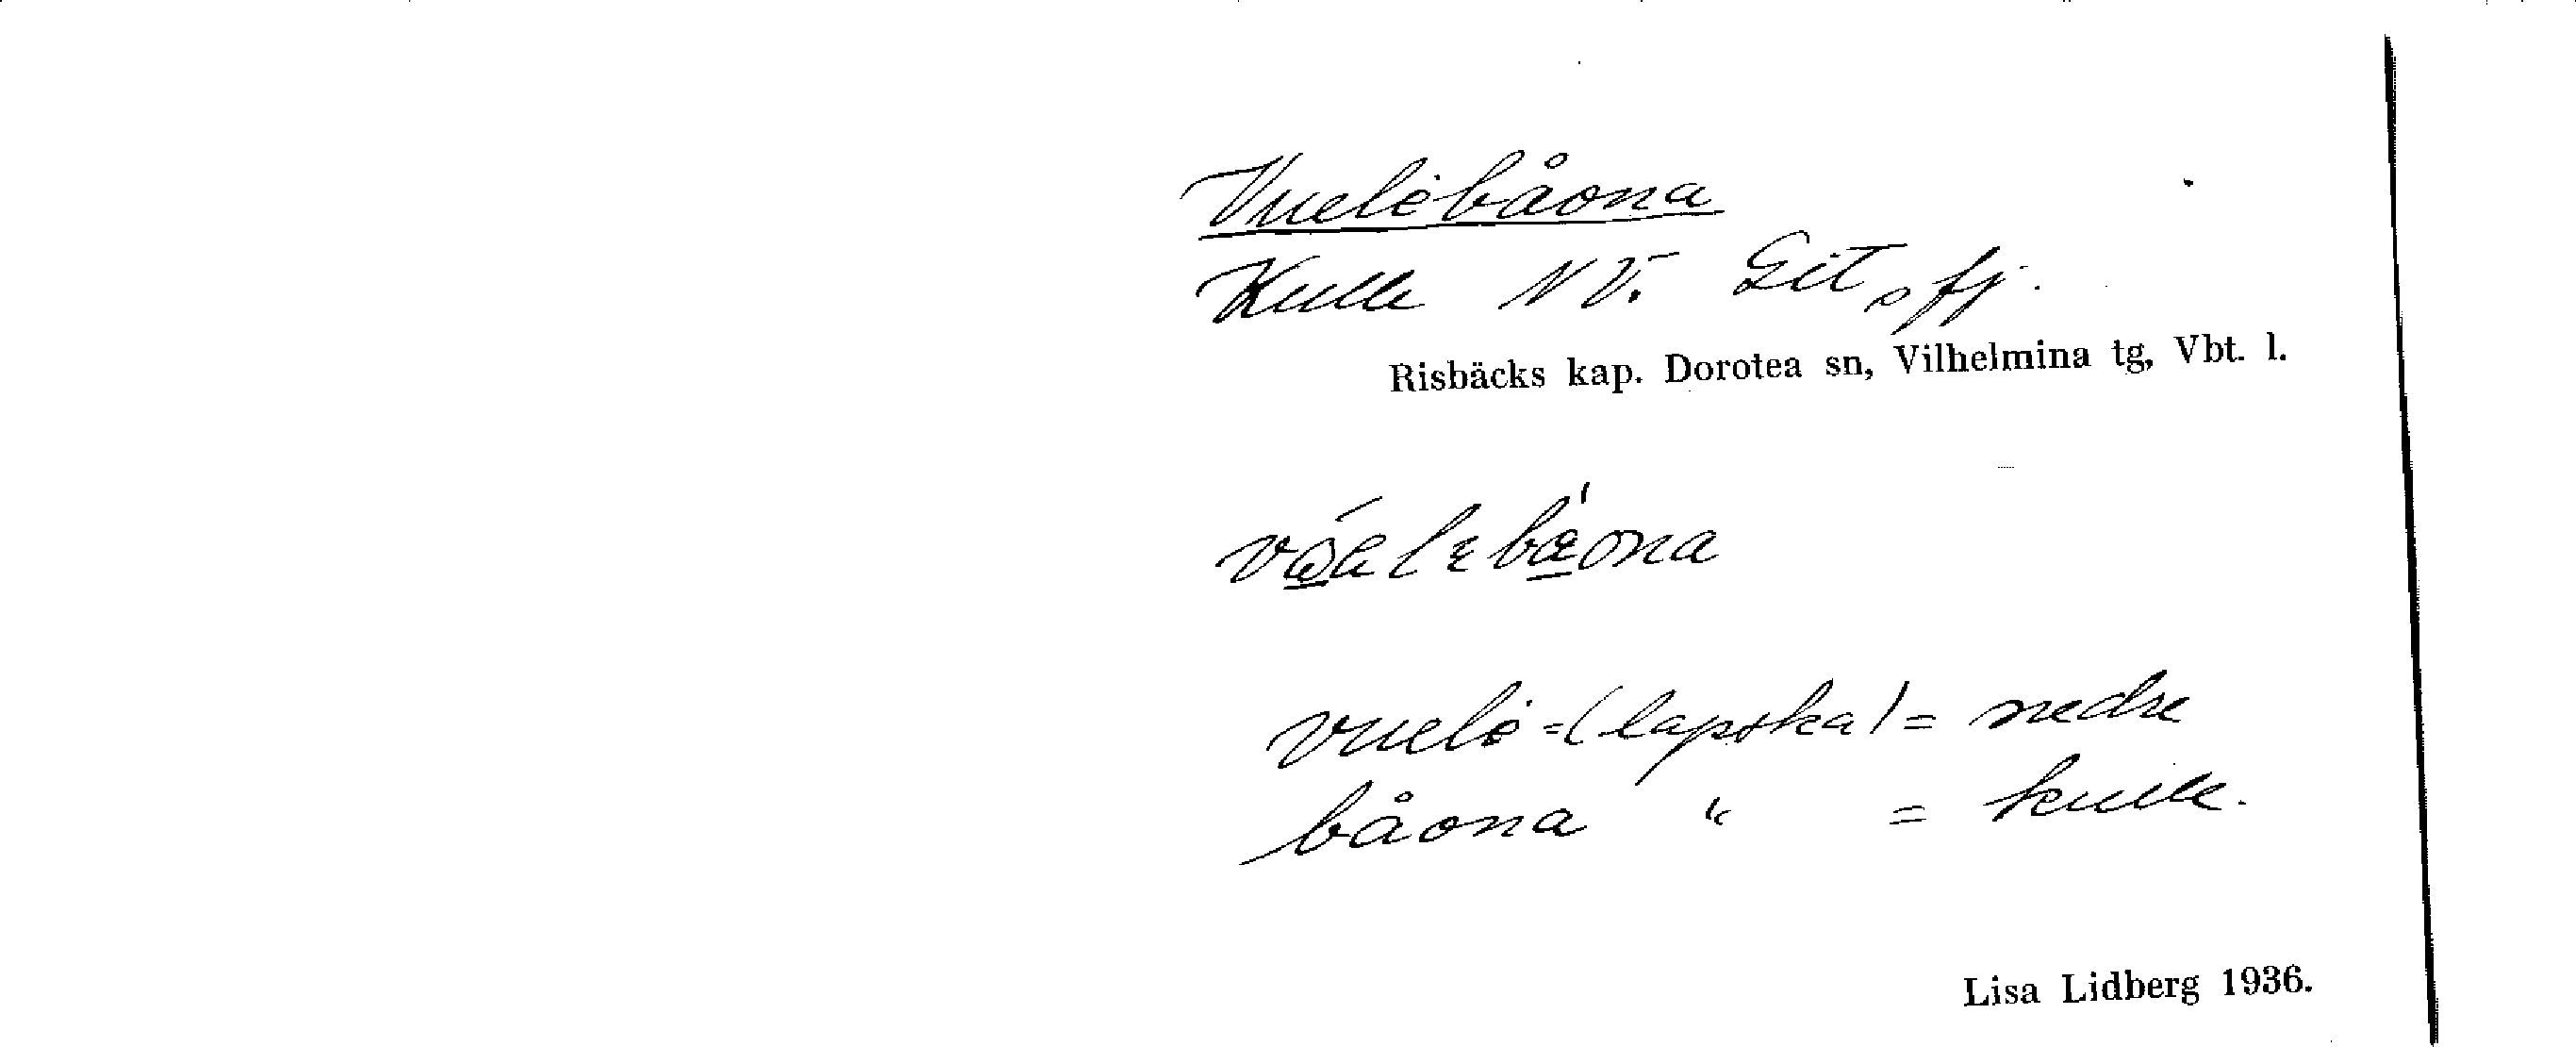 Vuelėbåona
Kulle NV. Git, fj.
Risbäcks kap. Dorotea sn, Vilhelmina tg, Vbt. l.
vuelė = (lapska) = nedre
båona " = kulle.
Lisa Lidberg 1936.